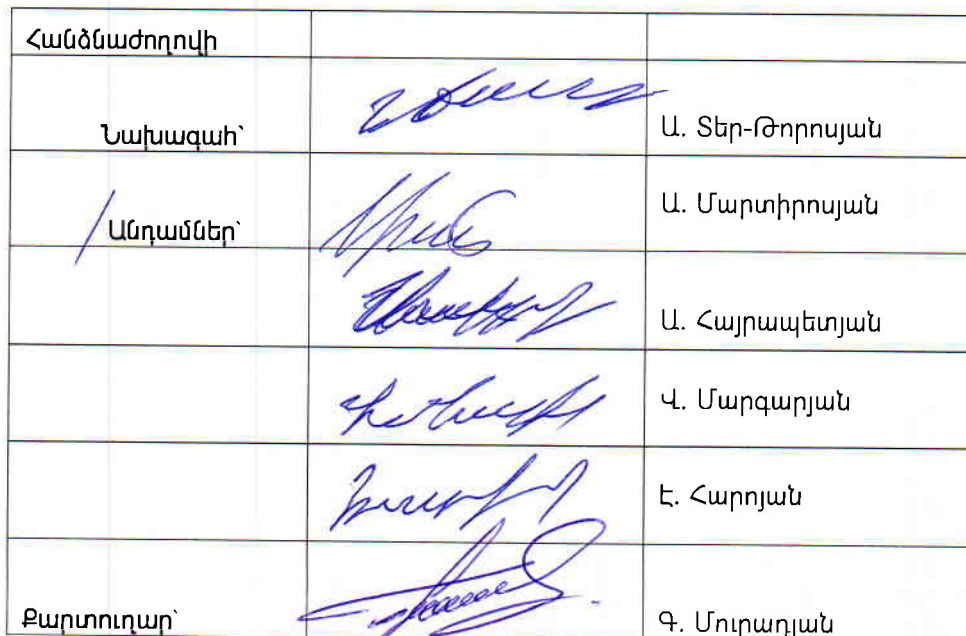 Հանձնաժողովի
Նախագահ՝ Ա. Տեր-Թորոսյան
Անդամներ՝ Ա. Մարտիրոսյան
Ա. Հայրապետյան
Վ. Մարգարյան
Է. Հարոյան
Քարտուղար՝ Գ. Մուրադյան